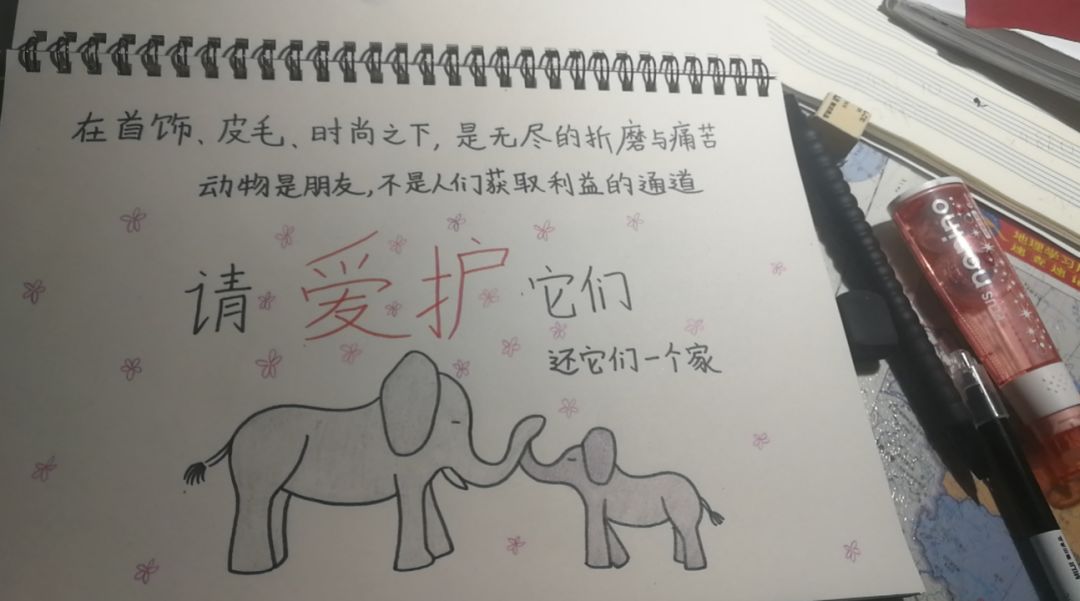 在首饰、皮毛、时尚之下,是无尽的折磨与痛苦
动物是朋友,不是人们获取利益的通道
请爱护它们
还它们一个家